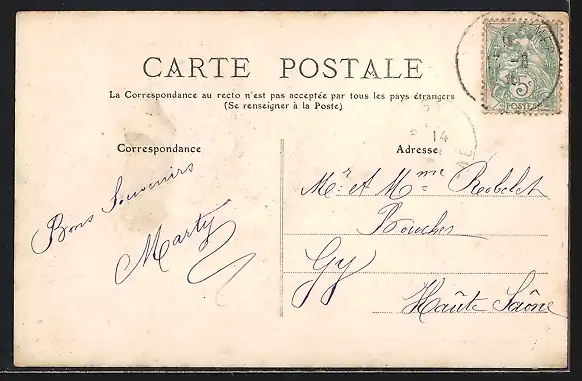 CARTE POSTALE
La Correspondance au recto n'est pas acceptée par tous les pays étrangers
(Se renseigner à la Poste)
Correspondance
Adresse
Bons Souvenirs
Marty
Mr et Mme Rebelet
Boucher
Gy
Haute Saône
5
POSTES
14